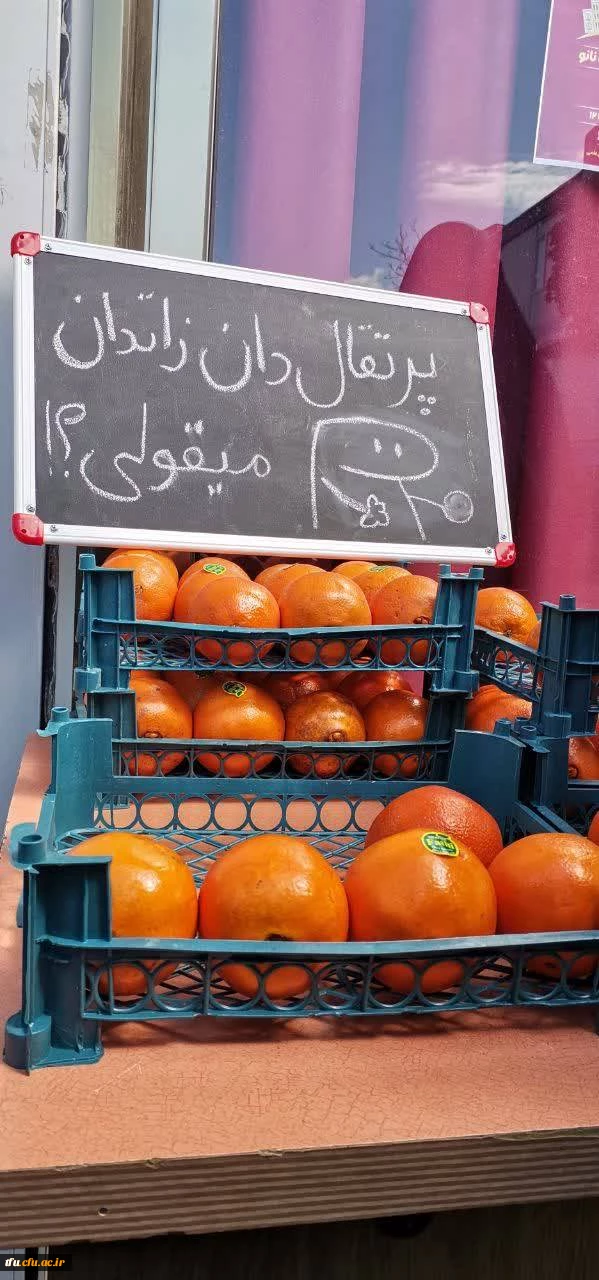 پرتقال دان زاتدان
میقولی؟!
نانو
tfu.cfu.ac.ir